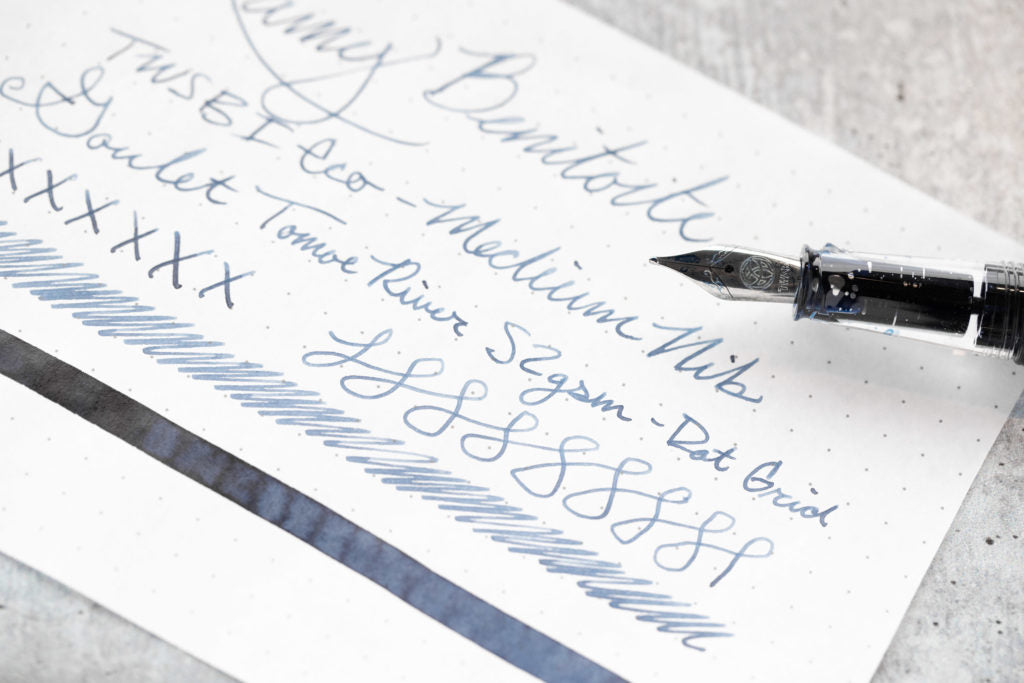 Benitoite
TWSBI Eco - Medium Nib
Goulet Tomoe River 52gsm - Dot Grid
XXXXXX
TWSBI